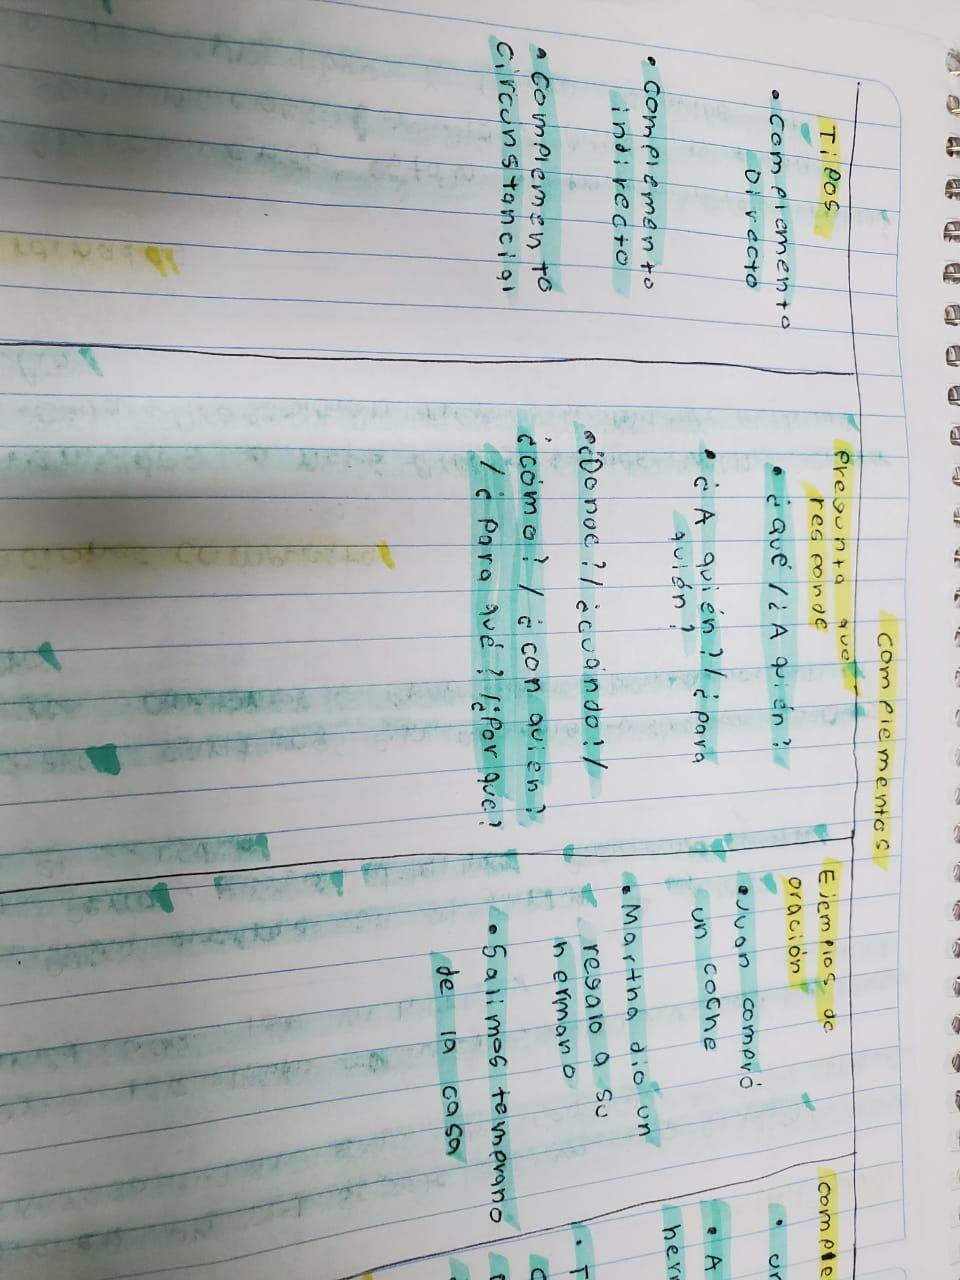 complementos
Tipos
• complemento
Directo
• complemento
indirecto
• complemento
circunstancial
Pregunta que
responde
• ¿qué / ¿A quién?
• ¿A quién? / ¿para
quién?
• ¿Donde? / ¿cuándo? /
¿cómo? / ¿con quien?
/ ¿Para qué? / ¿Por que?
Ejemplos de
oración
• Juan compró
un coche
• Martha dio un
regalo a su
hermano
• Salimos temprano
de la casa
comple
• un
• A
her
• T